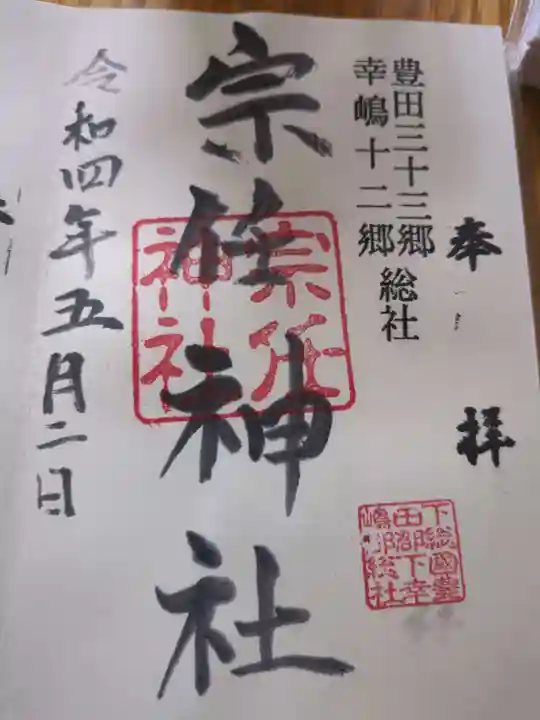 奉拝
豊田三十三郷
幸嶋十二郷 総社
宗任神社
宗任神社
下総國豊
田郡下幸
嶋郡総社
令和四年五月二日